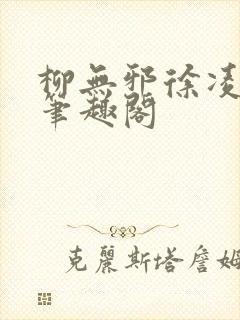 柳無邪徐凌
筆趣閣
克麗斯塔詹姆